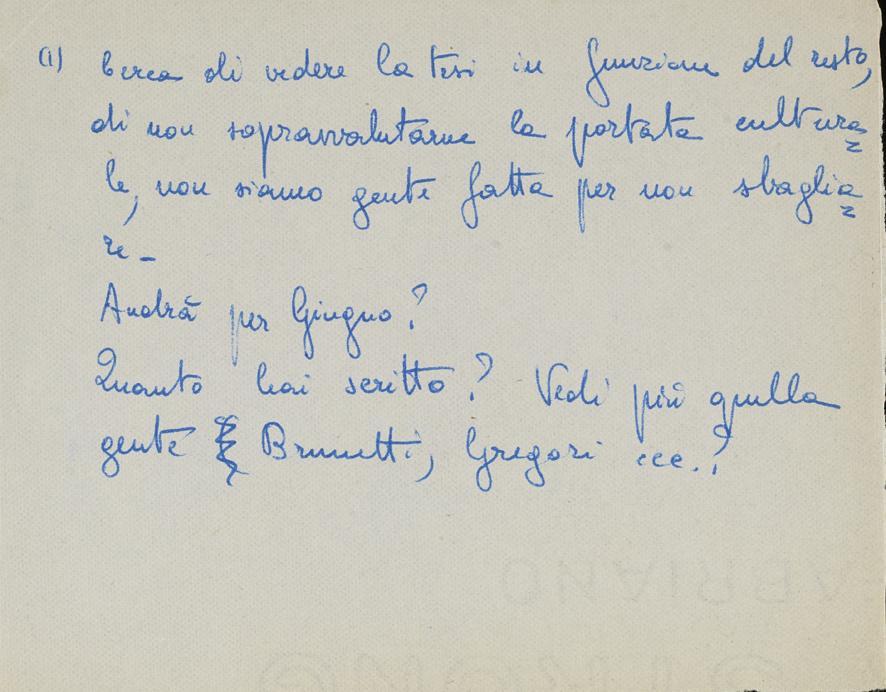 (1) Cerca di vedere la tesi in funzione del resto,
di non sopravvalutarne la portata cultura=
le, non siamo gente fatta per non sbaglia=
re -
Andrà per Giugno?
Quanto hai scritto? Vedi più quella
gente Brunetti, Gregori ecc.?
FABRIANO